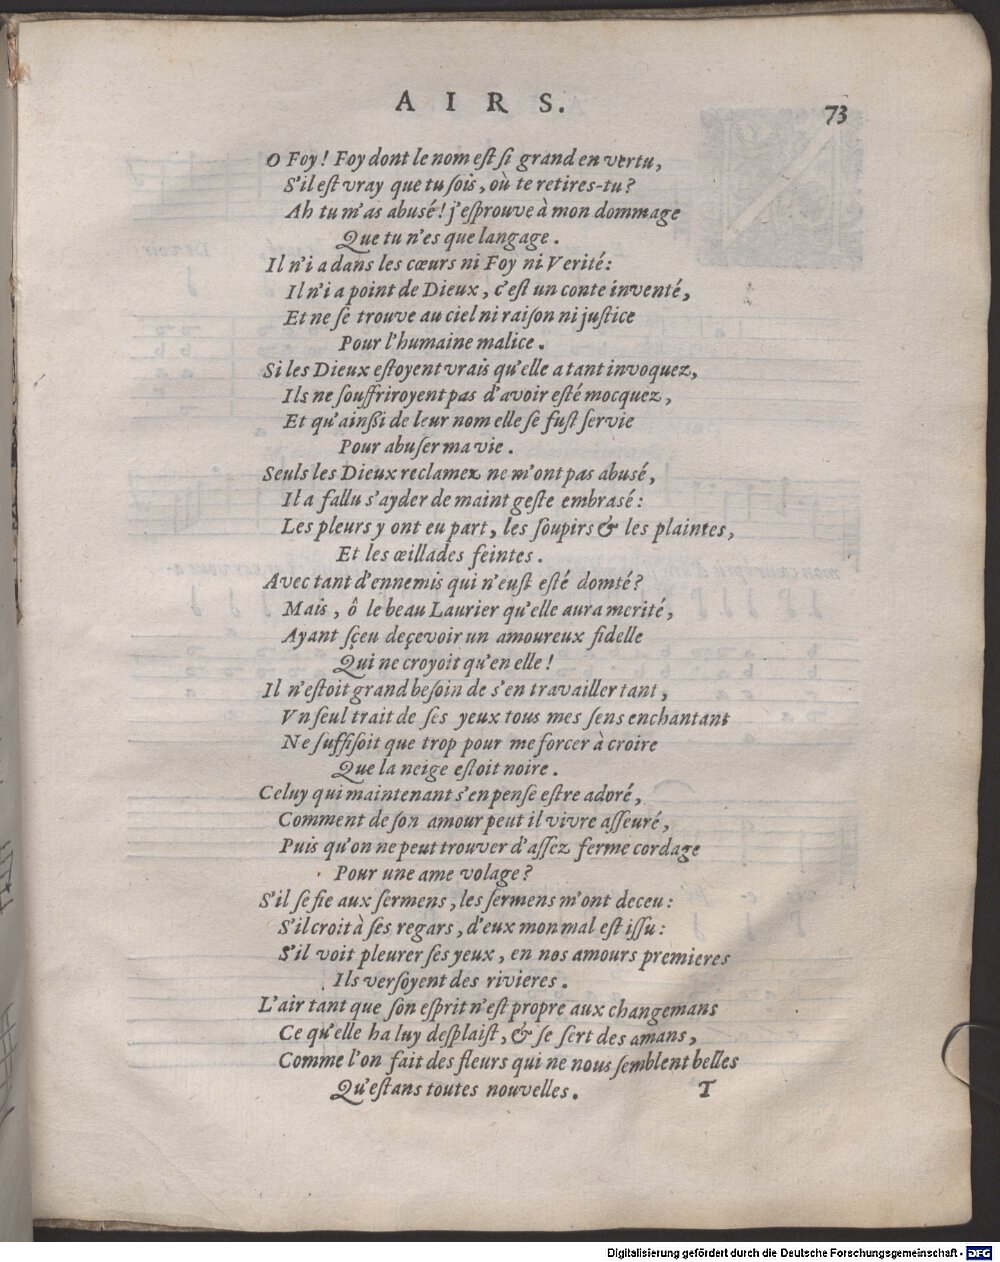 AIRS.
73
O Foy! Foy dont le nom est si grand en vertu,
S'il est vray que tu sois, où te retires-tu?
Ah tu m'as abusé! j'esprouve à mon dommage
Que tu n'es que langage.
Il n'i a dans les cœurs ni Foy ni Verité:
Il n'i a point de Dieux, c'est un conte inventé,
Et ne se trouve au ciel ni raison ni justice
Pour l'humaine malice.
Si les Dieux estoyent vrais qu'elle a tant invoquez,
Ils ne souffriroyent pas d'avoir esté mocquez,
Et qu'ainsi de leur nom elle se fust servie
Pour abuser ma vie.
Seuls les Dieux reclamez ne m'ont pas abusé,
Il a fallu s'ayder de maint geste embrasé:
Les pleurs y ont eu part, les soupirs & les plaintes,
Et les œillades feintes.
Avec tant d'ennemis qui n'eust esté domté?
Mais, ô le beau Laurier qu'elle aura merité,
Ayant sçeu deçevoir un amoureux fidelle
Qui ne croyoit qu'en elle!
Il n'estoit grand besoin de s'en travailler tant,
Vn seul trait de ses yeux tous mes sens enchantant
Ne suffisoit que trop pour me forcer à croire
Que la neige estoit noire.
Celuy qui maintenant s'en pense estre adoré,
Comment de son amour peut il vivre asseuré,
Puis qu'on ne peut trouver d'assez ferme cordage
Pour une ame volage?
S'il se fie aux sermens, les sermens m'ont deceu:
S'il croit à ses regars, d'eux mon mal est issu:
S'il voit pleurer ses yeux, en nos amours premieres
Ils versoyent des rivieres.
L'air tant que son esprit n'est propre aux changemans
Ce qu'elle ha luy desplaist, & se sert des amans,
Comme l'on fait des fleurs qui ne nous semblent belles
Qu'estans toutes nouvelles.
T
Digitalisierung gefördert durch die Deutsche Forschungsgemeinschaft - DFG